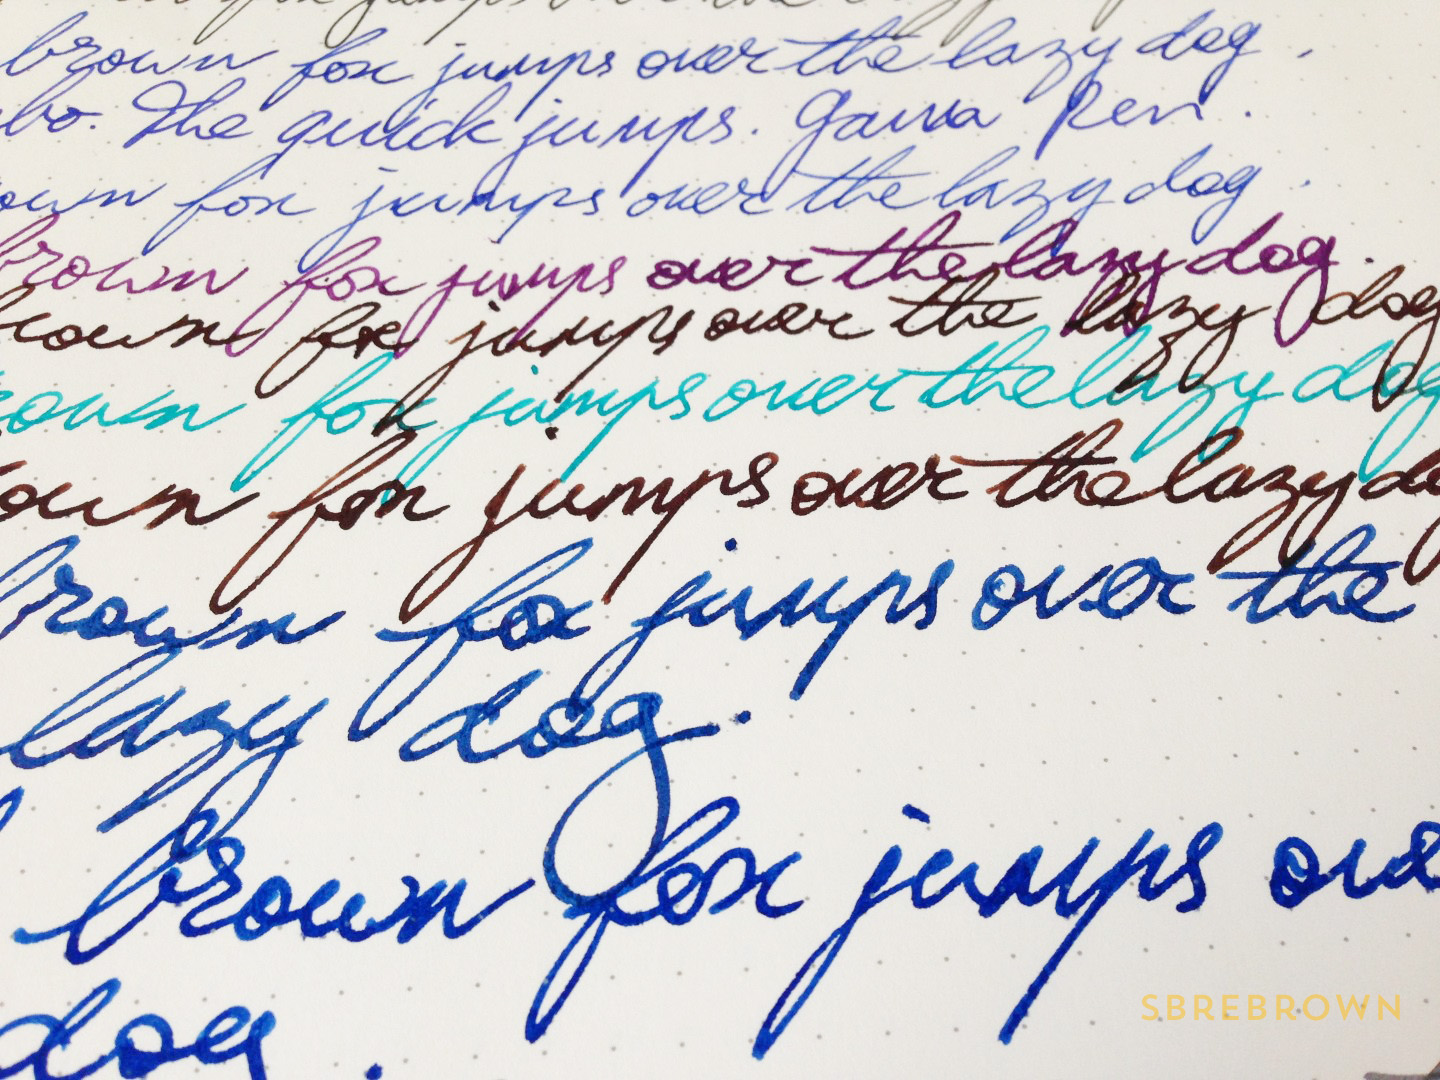 jumps over the lazy
brown fox jumps over the lazy dog.
The quick jumps. Gama Pen.
own fox jumps over the lazy dog.
brown fox jumps over the lazy dog.
brown fox jumps over the lazy dog
rown fox jumps over the lazy dog
own fox jumps over the lazy do
brown fox jumps over the
lazy dog.
brown fox jumps ove
dog.
SBREBROWN